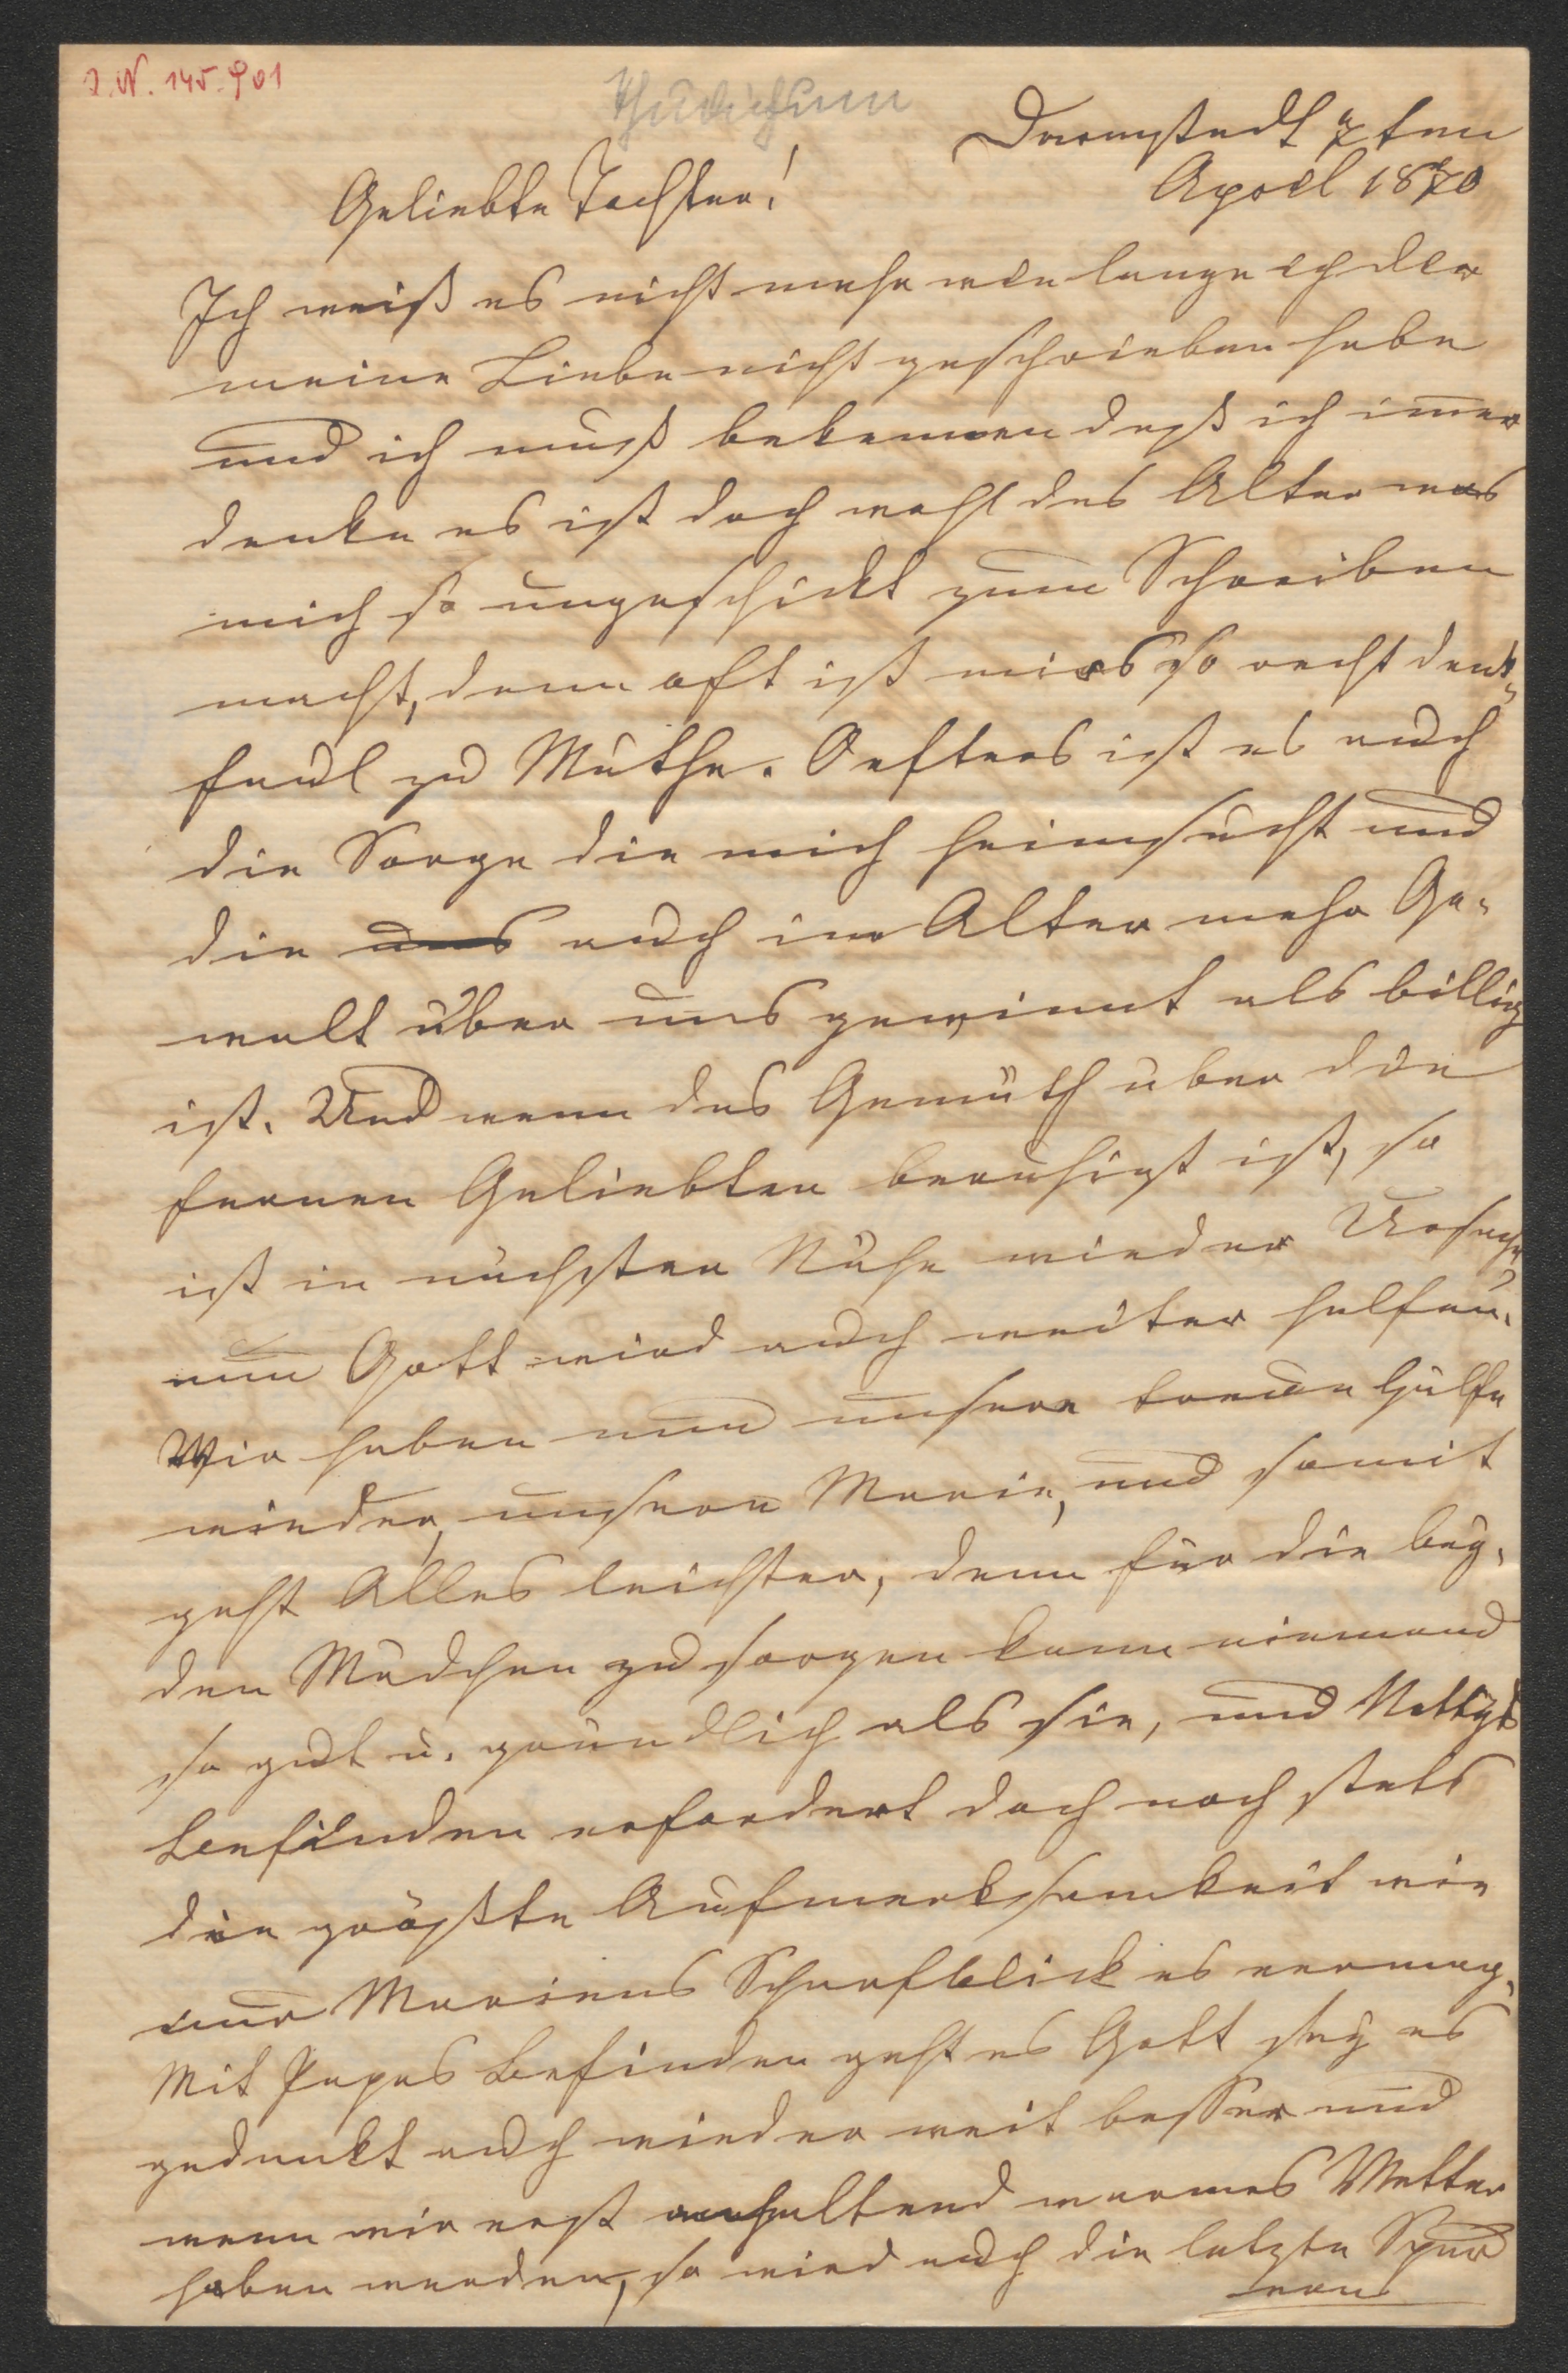 I.N. 145.901
Thudichum
Darmstadt 7ten
April 1870
Geliebte Tochter!
Ich weiß es nicht mehr wie lange ich dir
meine Liebe nicht geschrieben habe
und ich muß bekennen daß ich im̅er
denke es ist doch wohl das Alter was
mich so ungeschickt zum Schreiben
macht, denn oft ist mirs so recht denk-
faul zu Muthe. Oefters ist es auch
die Sorge die mich heimsucht und
die uns auch im Alter mehr Ge-
walt über uns gewinnt als billig
ist. Und wenn das Gemüth über die
fernen Geliebten beruhigt ist, so
ist in nächsten Nähe wieder Ursache
nun Gott wird auch weiter helfen.
Wir haben nun unsere treue Hülfe
wieder, unsere Marie, und somit
geht Alles leichter, denn für die bey-
den Mädchen zu sorgen kann niemand
so gut u. gründlich als sie, und Nettys
Befinden erfordert doch noch stets
die größte Aufmerksamkeit wie
nur Mariens Scharfblick es vermag.
Mit Papas Befinden geht es Gott sey es
gedankt auch wieder weit besser und
wenn wir erst anhaltend warmes Wetter
haben werden, so wird auch die letzte Spur